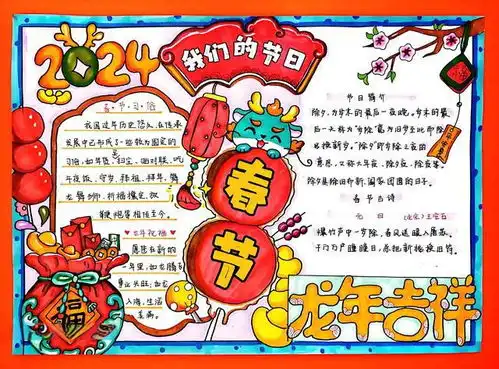 2024
我们的节日
春·节·习·俗
我国过年历史悠久,在传承
发展中已形成了一些较为固定的
习俗,如年货、扫尘、贴对联、吃
年夜饭、守岁、拜祖、拜年、舞
龙舞狮、祈福攘灾、放
鞭炮等相传至今。
龙年祝福
愿您在新的
一年里,如龙腾
事业兴旺;如
入海,生活
美满。
福
春
节
节日简介
除夕,为岁末的最后一夜晚。岁末的最
后一天称为“岁除”,意为旧岁至此即除
另换新岁。“除夕”即岁除之夜的
意思,又称大年夜、除夕夜、除夜等。
除夕是除旧布新、阖家团圆的日子。
春节古诗
元日 (北宋)王安石
爆竹声中一岁除,春风送暖入屠苏。
千门万户曈曈日,总把新桃换旧符。
龙年吉祥